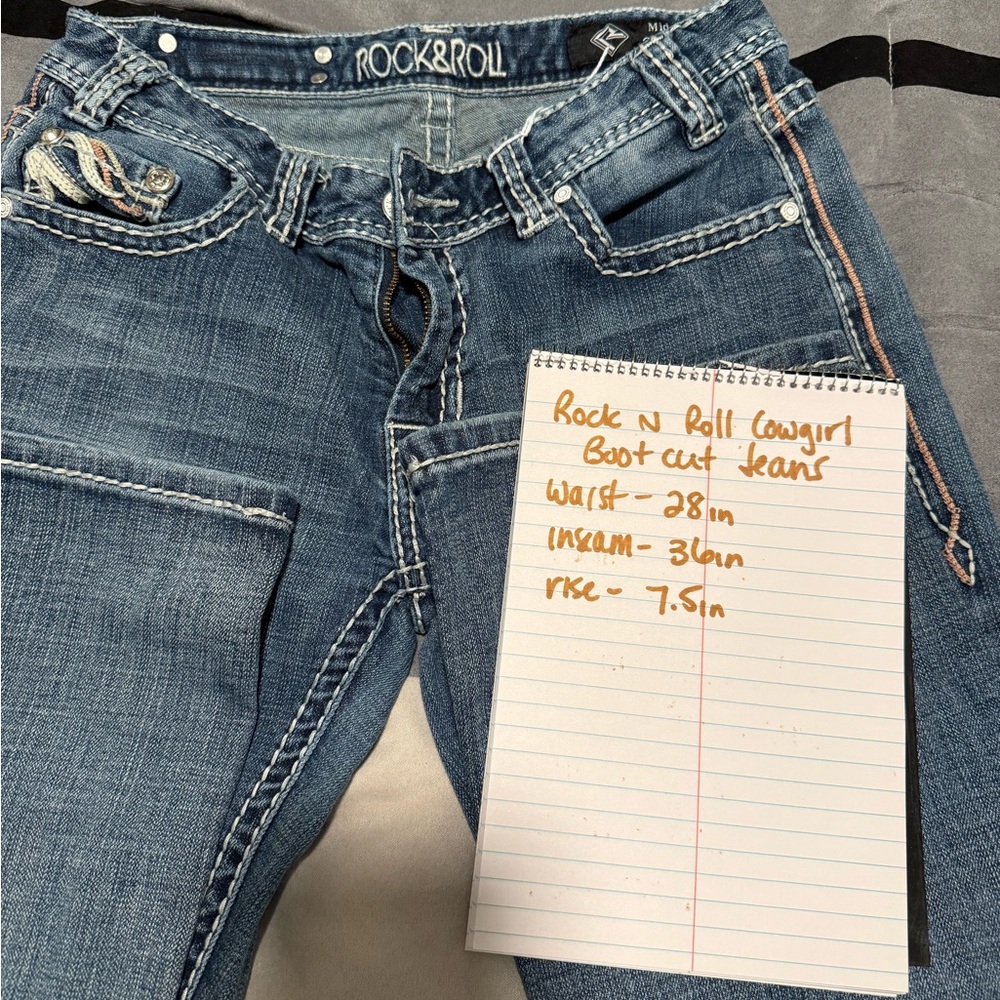 ROCK&ROLL
Rock N Roll Cowgirl
Boot cut Jeans
waist - 28in
inseam - 36in
rise - 7.5in